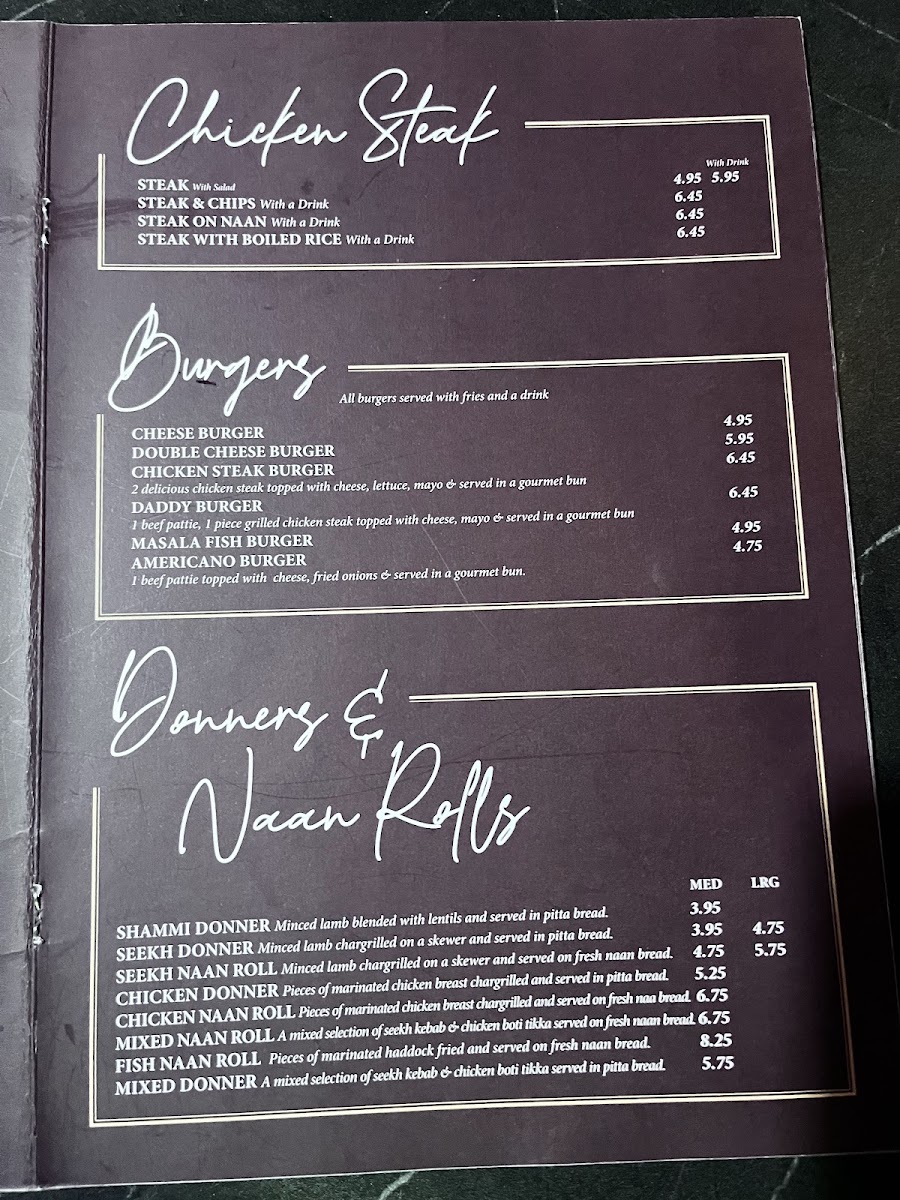 Chicken Steak
With Drink
STEAK With Salad 4.95 5.95
STEAK & CHIPS With a Drink 6.45
STEAK ON NAAN With a Drink 6.45
STEAK WITH BOILED RICE With a Drink 6.45
Burgers
All burgers served with fries and a drink
CHEESE BURGER 4.95
DOUBLE CHEESE BURGER 5.95
CHICKEN STEAK BURGER 6.45
2 delicious chicken steak topped with cheese, lettuce, mayo & served in a gourmet bun
DADDY BURGER 6.45
1 beef pattie, 1 piece grilled chicken steak topped with cheese, mayo & served in a gourmet bun
MASALA FISH BURGER 4.95
AMERICANO BURGER 4.75
1 beef pattie topped with cheese, fried onions & served in a gourmet bun.
Donners &
Naan Rolls
MED LRG
SHAMMI DONNER Minced lamb blended with lentils and served in pitta bread. 3.95
SEEKH DONNER Minced lamb chargrilled on a skewer and served in pitta bread. 3.95 4.75
SEEKH NAAN ROLL Minced lamb chargrilled on a skewer and served on fresh naan bread. 4.75 5.75
CHICKEN DONNER Pieces of marinated chicken breast chargrilled and served in pitta bread. 5.25
CHICKEN NAAN ROLL Pieces of marinated chicken breast chargrilled and served on fresh naa bread. 6.75
MIXED NAAN ROLL A mixed selection of seekh kebab & chicken boti tikka served on fresh naan bread. 6.75
FISH NAAN ROLL Pieces of marinated haddock fried and served on fresh naan bread. 8.25
MIXED DONNER A mixed selection of seekh kebab & chicken boti tikka served in pitta bread. 5.75